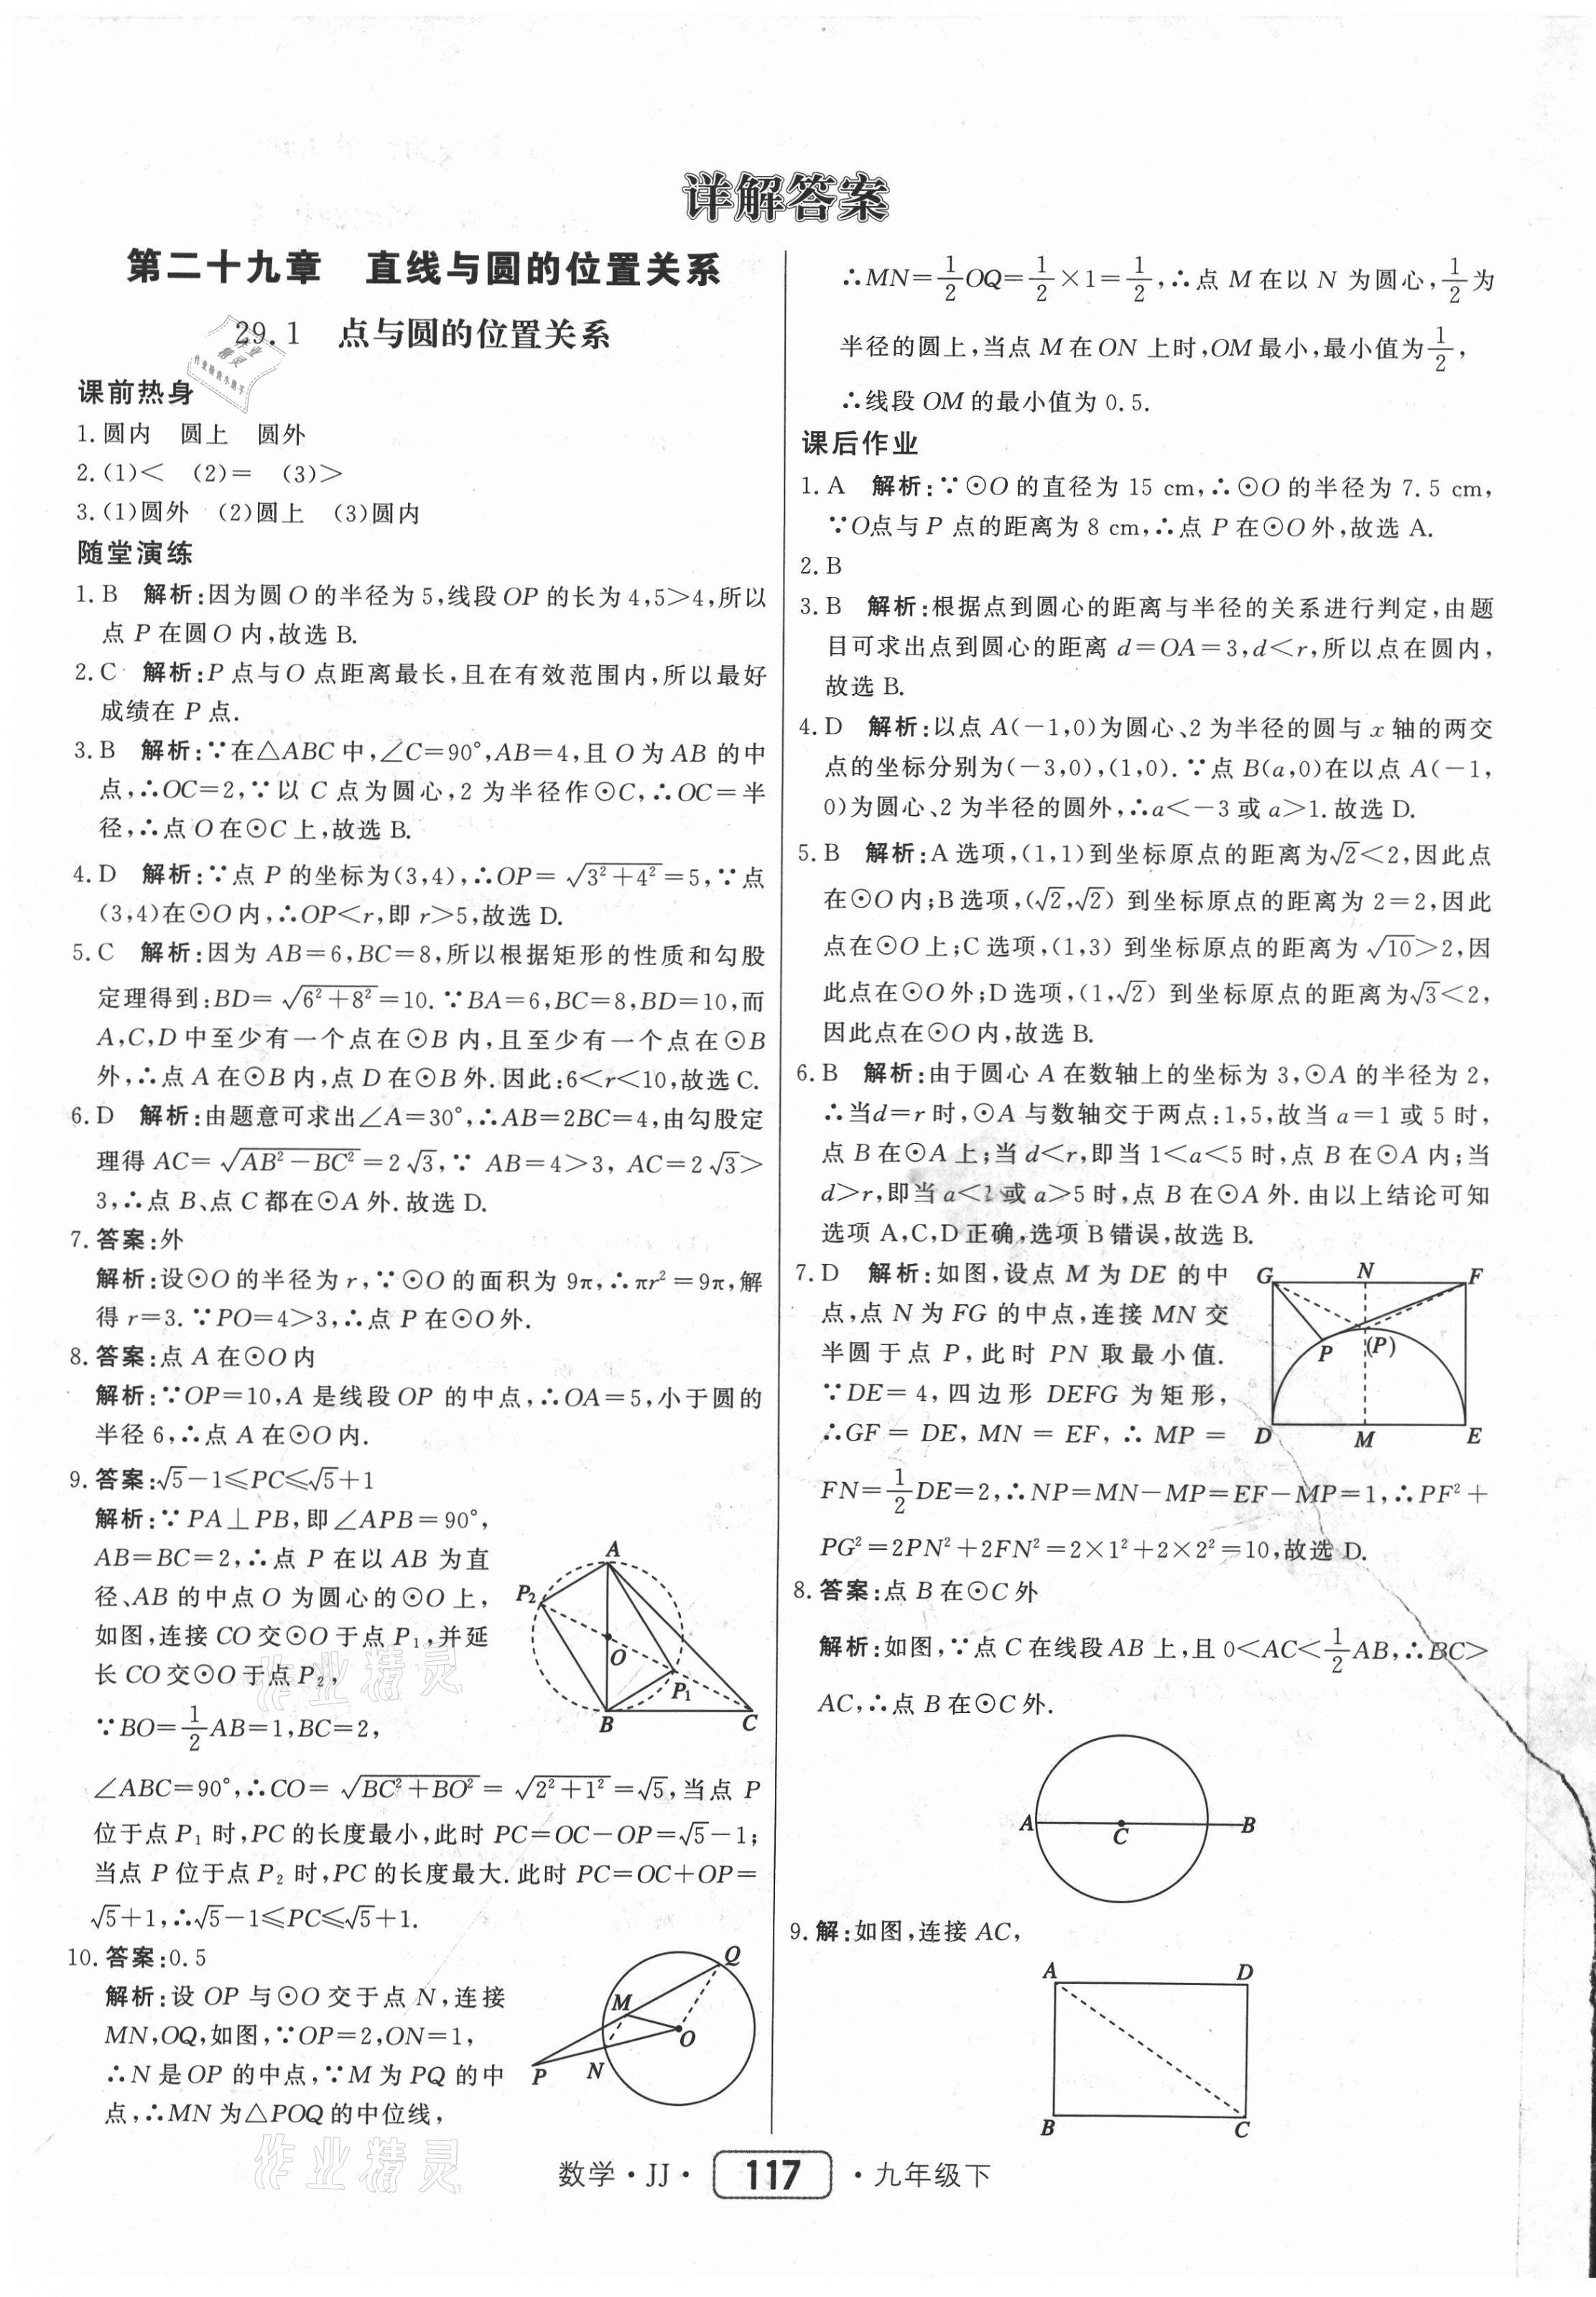 详解答案
第二十九章　直线与圆的位置关系
29.1　点与圆的位置关系
课前热身
1.圆内　圆上　圆外
2.(1)<　(2)=　(3)>
3.(1)圆外　(2)圆上　(3)圆内
随堂演练
1.B　解析:因为圆O的半径为5,线段OP的长为4,5>4,所以
点P在圆O内,故选B.
2.C　解析:P点与O点距离最长,且在有效范围内,所以最好
成绩在P点.
3.B　解析:∵在△ABC中,∠C=90°,AB=4,且O为AB的中
点,∴OC=2,∵以C点为圆心,2为半径作⊙C,∴OC=半
径,∴点O在⊙C上,故选B.
4.D　解析:∵点P的坐标为(3,4),∴OP=√(3²+4²)=5,∵点
(3,4)在⊙O内,∴OP<r,即r>5,故选D.
5.C　解析:因为AB=6,BC=8,所以根据矩形的性质和勾股
定理得到:BD=√(6²+8²)=10.∵BA=6,BC=8,BD=10,而
A,C,D中至少有一个点在⊙B内,且至少有一个点在⊙B
外,∴点A在⊙B内,点D在⊙B外.因此:6<r<10,故选C.
6.D　解析:由题意可求出∠A=30°,∴AB=2BC=4,由勾股定
理得AC=√(AB²-BC²)=2√3,∵AB=4>3,AC=2√3>
3,∴点B、点C都在⊙A外.故选D.
7.答案:外
解析:设⊙O的半径为r,∵⊙O的面积为9π,∴πr²=9π,解
得r=3.∵PO=4>3,∴点P在⊙O外.
8.答案:点A在⊙O内
解析:∵OP=10,A是线段OP的中点,∴OA=5,小于圆的
半径6,∴点A在⊙O内.
9.答案:√5-1≤PC≤√5+1
解析:∵PA⊥PB,即∠APB=90°,
AB=BC=2,∴点P在以AB为直
径、AB的中点O为圆心的⊙O上,
如图,连接CO交⊙O于点P₁,并延
长CO交⊙O于点P₂,
∵BO=1/2AB=1,BC=2,
A
P₂
O
P₁
B
C
∠ABC=90°,∴CO=√(BC²+BO²)=√(2²+1²)=√5,当点P
位于点P₁时,PC的长度最小,此时PC=OC-OP=√5-1;
当点P位于点P₂时,PC的长度最大.此时PC=OC+OP=
√5+1,∴√5-1≤PC≤√5+1.
10.答案:0.5
解析:设OP与⊙O交于点N,连接
MN,OQ,如图,∵OP=2,ON=1,
∴N是OP的中点,∵M为PQ的中
点,∴MN为△POQ的中位线,
Q
M
O
P
N
∴MN=1/2OQ=1/2×1=1/2,∴点M在以N为圆心,1/2为
半径的圆上,当点M在ON上时,OM最小,最小值为1/2,
∴线段OM的最小值为0.5.
课后作业
1.A　解析:∵⊙O的直径为15 cm,∴⊙O的半径为7.5 cm,
∵O点与P点的距离为8 cm,∴点P在⊙O外,故选A.
2.B
3.B　解析:根据点到圆心的距离与半径的关系进行判定,由题
目可求出点到圆心的距离d=OA=3,d<r,所以点在圆内,
故选B.
4.D　解析:以点A(-1,0)为圆心、2为半径的圆与x轴的两交
点的坐标分别为(-3,0),(1,0).∵点B(a,0)在以点A(-1,
0)为圆心、2为半径的圆外,∴a<-3或a>1.故选D.
5.B　解析:A选项,(1,1)到坐标原点的距离为√2<2,因此点
在⊙O内;B选项,(√2,√2)到坐标原点的距离为2=2,因此
点在⊙O上;C选项,(1,3)到坐标原点的距离为√10>2,因
此点在⊙O外;D选项,(1,√2)到坐标原点的距离为√3<2,
因此点在⊙O内,故选B.
6.B　解析:由于圆心A在数轴上的坐标为3,⊙A的半径为2,
∴当d=r时,⊙A与数轴交于两点:1,5,故当a=1或5时,
点B在⊙A上;当d<r,即当1<a<5时,点B在⊙A内;当
d>r,即当a<1或a>5时,点B在⊙A外.由以上结论可知
选项A,C,D正确,选项B错误,故选B.
7.D　解析:如图,设点M为DE的中
点,点N为FG的中点,连接MN交
半圆于点P,此时PN取最小值.
∵DE=4,四边形DEFG为矩形,
∴GF=DE,MN=EF,∴MP=
G
N
F
P
(P)
D
M
E
FN=1/2DE=2,∴NP=MN-MP=EF-MP=1,∴PF²+
PG²=2PN²+2FN²=2×1²+2×2²=10,故选D.
8.答案:点B在⊙C外
解析:如图,∵点C在线段AB上,且0<AC<1/2AB,∴BC>
AC,∴点B在⊙C外.
A
C
B
9.解:如图,连接AC,
A
D
B
C
数学·JJ·　117　·九年级下
作业精灵
作业精灵